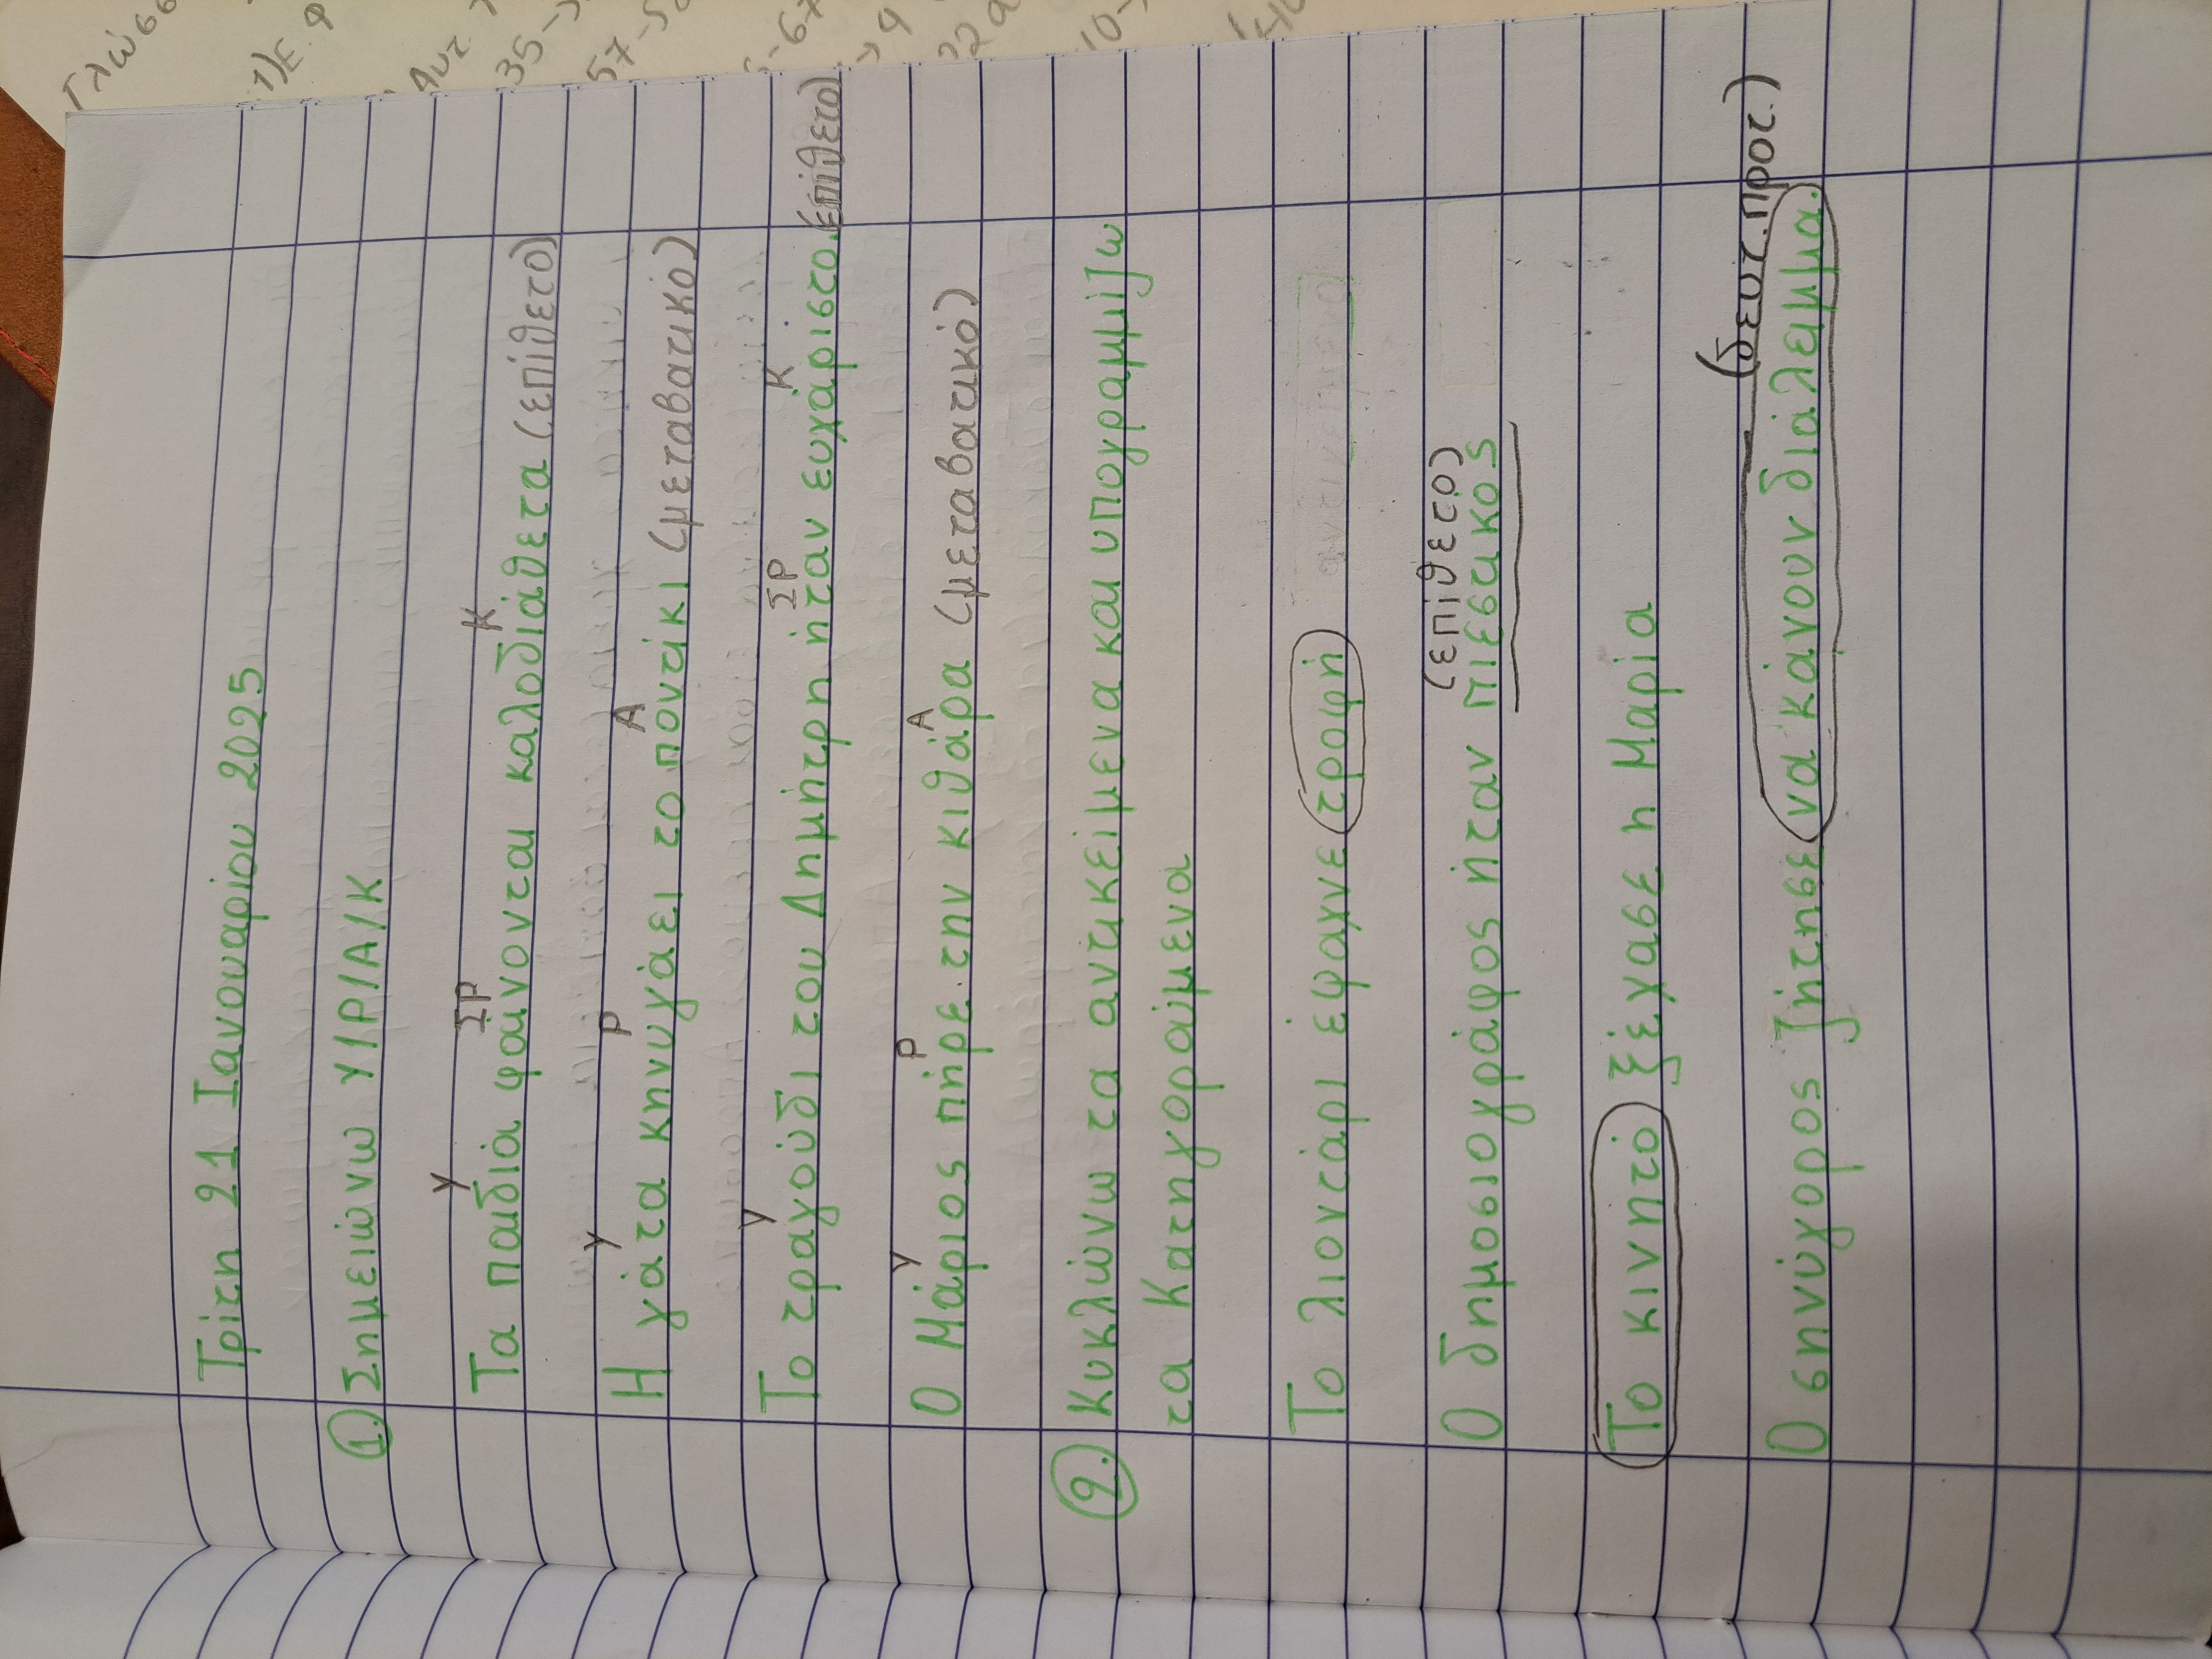 Τρίτη 21 Ιανουαρίου 2025
1. Σημειώνω Υ/Ρ/Α/Κ
Υ ΣΡ Κ
Τα παιδιά φαίνονται καλοδιάθετα (επίθετο)
Υ Ρ Α
Η γάτα κηνυγάει το ποντίκι (μεταβατικό)
Υ ΣΡ Κ
Το τραγούδι του Δημήτρη ήταν ευχάριστο. (επίθετο)
Υ Ρ Α
Ο Μάριος πήρε την κιθάρα (μεταβατικό)
2. Κυκλώνω τα αντικείμενα και υπογραμμίζω
τα Κατηγορούμενα
Το λιοντάρι έψαχνε τροφή
(επίθετο)
Ο δημοσιογράφος ήταν πιεστικός
Το κινητό ξέχασε η Μαρία
(δευτ. προτ.)
Ο σηνύγορος ζήτησε να κάνουν διάλειμμα.
Γλώσσ
1) Ε. φ
Αντ.
35-
57-5
-67
10-